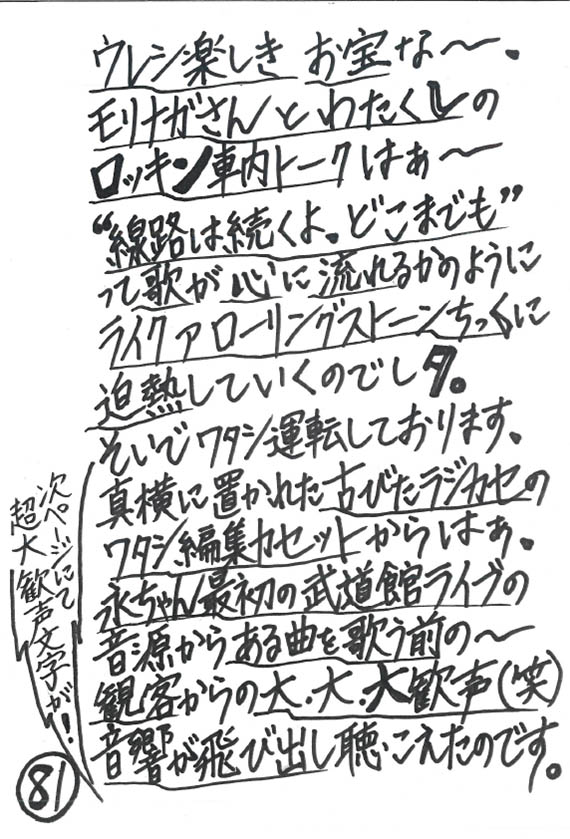 ウレシ楽しき お宝な〜。
モリナガさんとわたくしの
ロッキン車内トークはぁ〜
“線路は続くよ。どこまでも”
って歌が心に流れるかのように
ライク ア ローリングストーンちっくに
迫熱していくのでしタ。
そいでワタシ運転しております、
真横に置かれた古びたラジカセの
ワタシ編集カセットからはぁ。
永ちゃん最初の武道館ライブの
音源からある曲を歌う前の〜
観客からの大.大.大歓声(笑)
音響が飛び出し聴こえたのです。
次ページにて
超大歓声文字が!
81